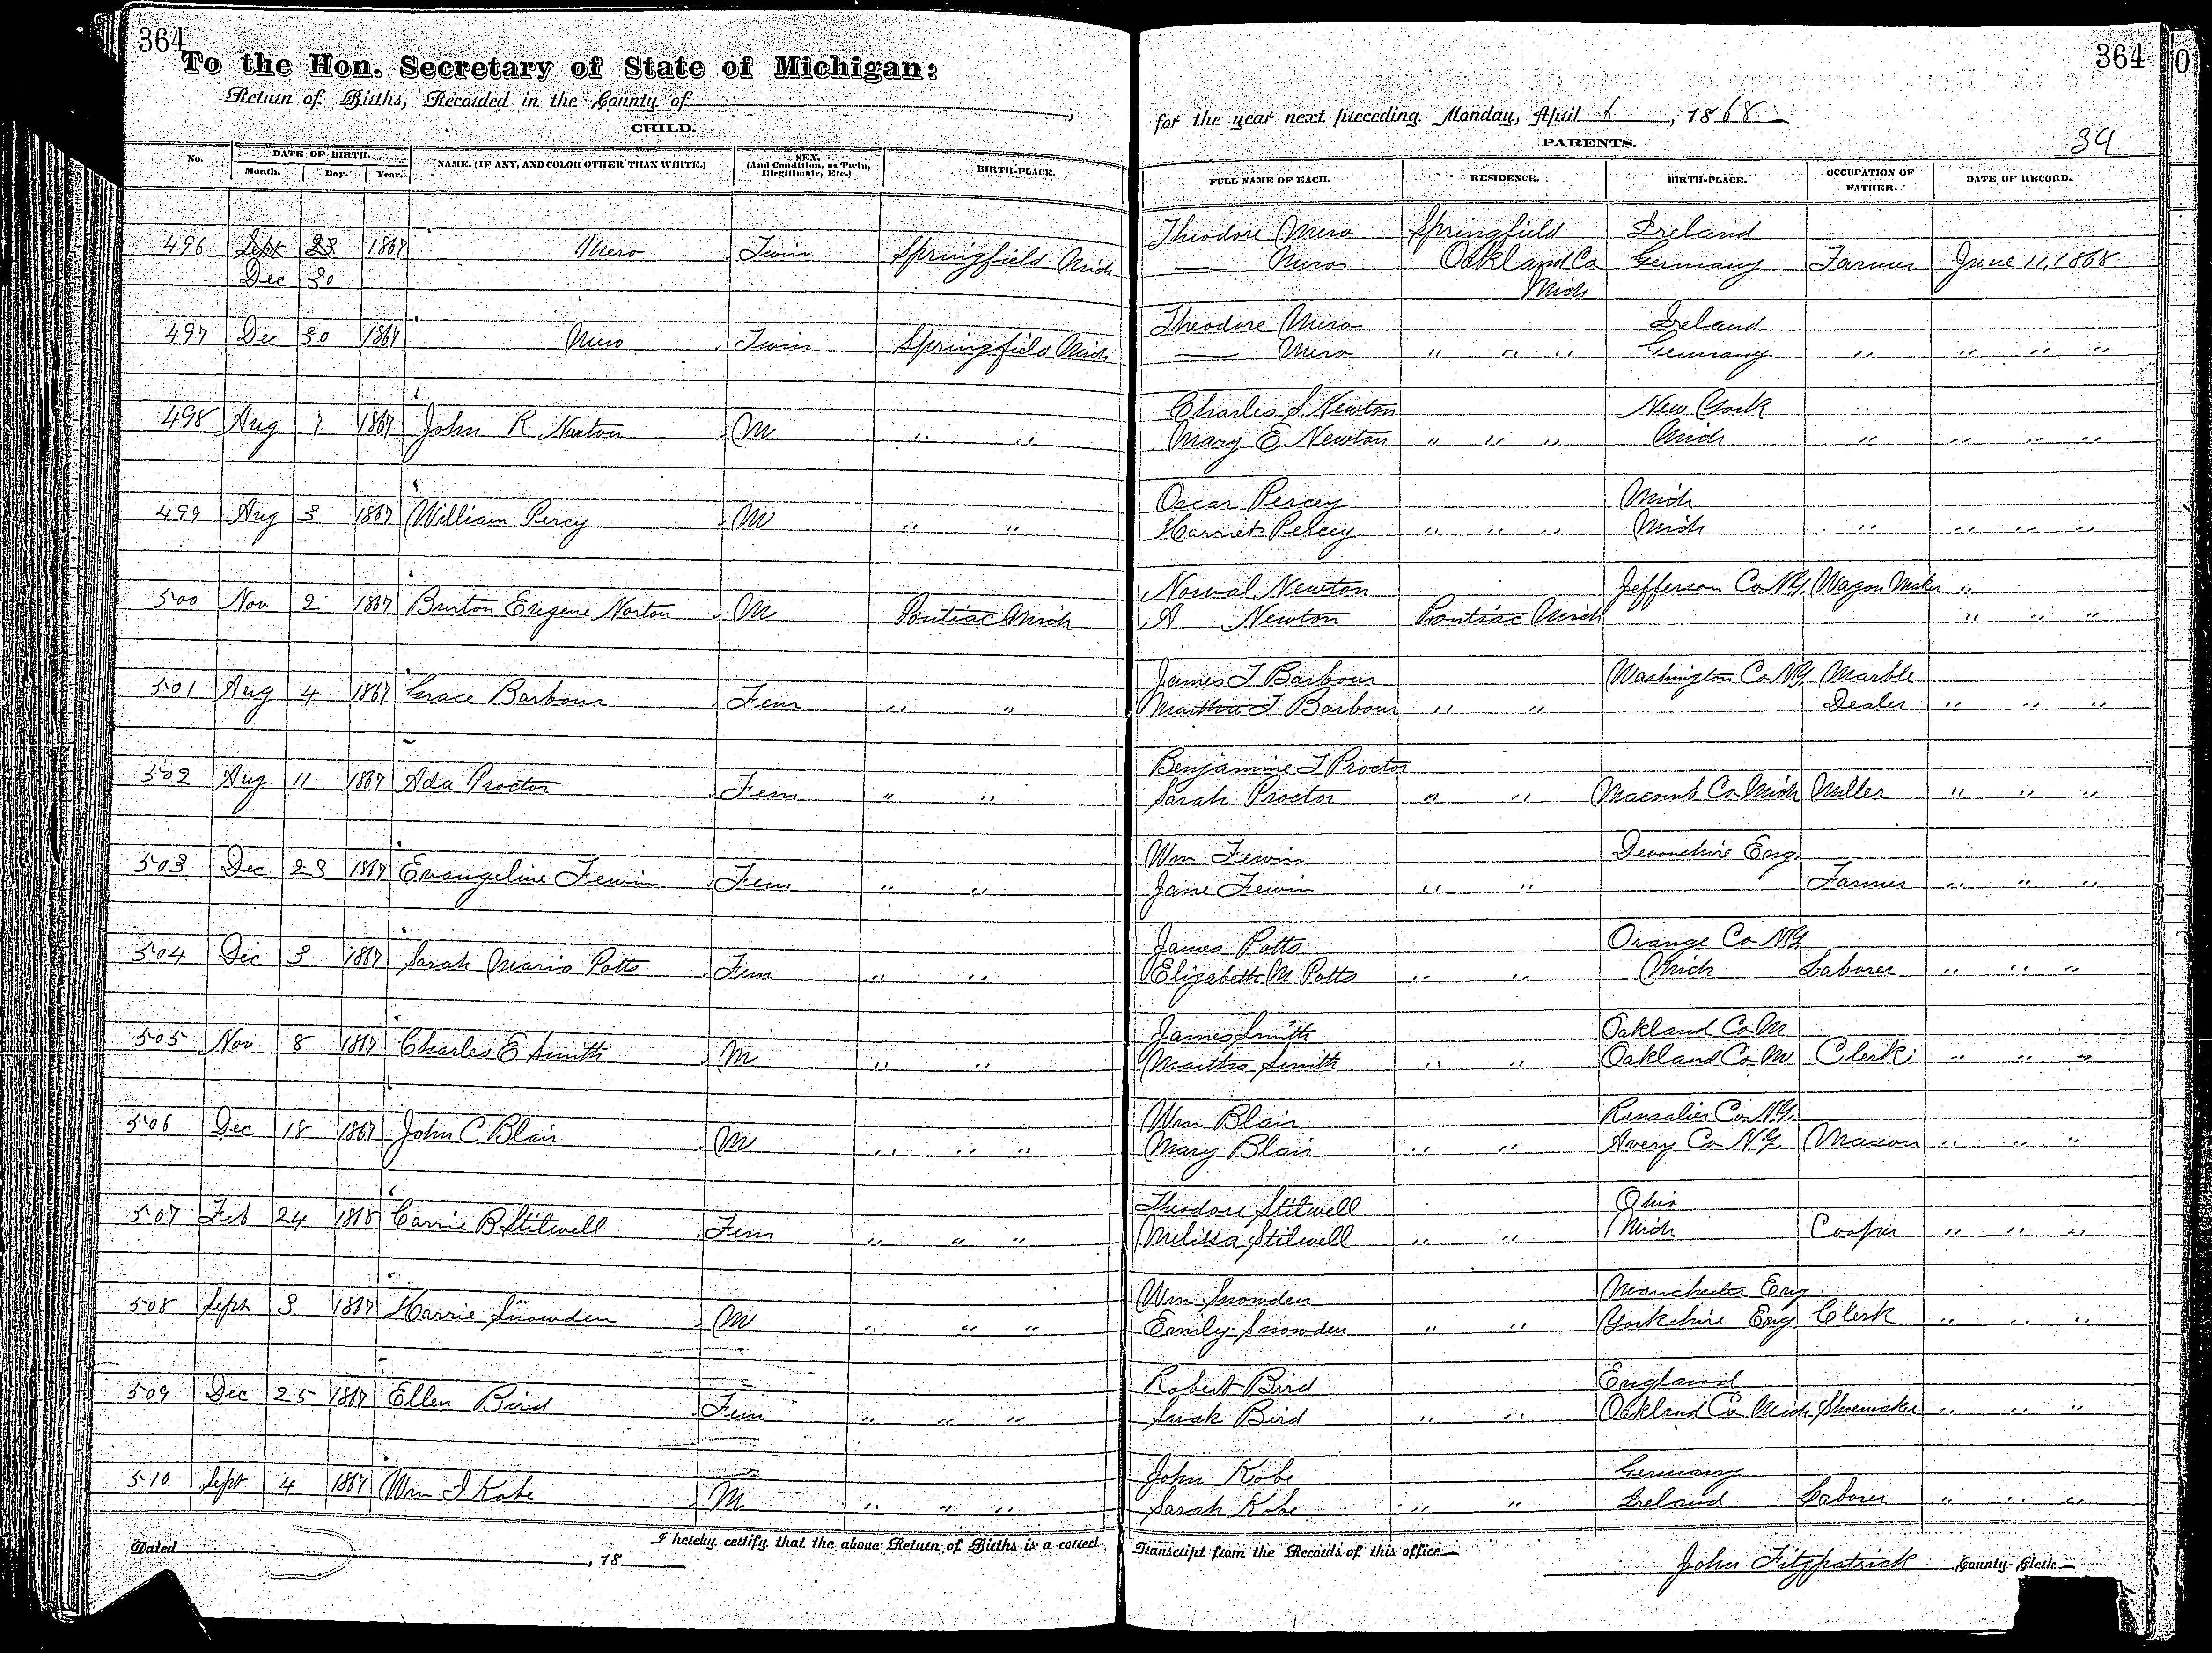 364
To the Hon. Secretary of State of Michigan:
Return of Births, Recorded in the County of
CHILD.
No. DATE OF BIRTH. NAME, (IF ANY, AND COLOR OTHER THAN WHITE.) SEX, (And Condition, as Twin, Illegitimate, Etc.) BIRTH-PLACE.
Month. Day. Year.
496 Sept 23 1867 Mero Twin Springfield Mich
Dec 30
497 Dec 30 1867 Mero Twin Springfield Mich
498 Aug 7 1867 John R Newton M " "
499 Aug 3 1867 William Percy M " "
500 Nov 2 1867 Burton Eugene Norton M Pontiac Mich
501 Aug 4 1867 Grace Barbour Fem " "
502 Aug 11 1867 Ada Proctor Fem " "
503 Dec 23 1867 Evangeline Fewin Fem " "
504 Dec 3 1867 Sarah Maria Potts Fem " "
505 Nov 8 1867 Charles E Smith M " "
506 Dec 18 1867 John C Blair M " " "
507 Feb 24 1868 Carrie B Stilwell Fem " " "
508 Sept 3 1867 Harrie Snowden M " " "
509 Dec 25 1867 Ellen Bird Fem " " "
510 Sept 4 1867 Wm I Kobe M " " "
Dated , 18 I hereby certify that the above Return of Births is a correct
364
for the year next preceding Monday, April 6, 1868
39
PARENTS.
FULL NAME OF EACH. RESIDENCE. BIRTH-PLACE. OCCUPATION OF FATHER. DATE OF RECORD.
Theodore Mero Springfield Ireland
— Mero Oakland Co Germany Farmer June 11, 1868
Mich
Theodore Mero Ireland
— Mero " " " Germany " " " "
Charles S. Newton New York
Mary E. Newton " " " Mich " " " "
Oscar Percey Mich
Harriet Percey " " " Mich " " " "
Norval Newton Jefferson Co N.Y. Wagon Maker "
A Newton Pontiac Mich " " "
James T Barbour Washington Co N.Y. Marble
Martha T Barbour " " Dealer " " "
Benjamine T Proctor
Sarah Proctor " " Macomb Co Mich Miller " " "
Wm Fewin Devonshire Eng.
Jane Fewin " " Farmer " " "
James Potts Orange Co N.Y.
Elizabeth M Potts " " Mich Laborer " " "
James Smith Oakland Co M
Martha Smith " " Oakland Co M Clerk " " "
Wm Blair Rensalier Co. N.Y.
Mary Blair " " Avery Co N.Y. Mason " " "
Theodore Stilwell Ohio
Melissa Stilwell " " Mich Cooper " " "
Wm Snowden Manchester Eng
Emily Snowden " " Yorkshire Eng. Clerk " " "
Robert Bird England
Sarah Bird " " Oakland Co Mich Shoemaker " " "
John Kobe Germany
Sarah Kobe " " Ireland Laborer " " "
Transcript from the Records of this office
John Fitzpatrick County Clerk